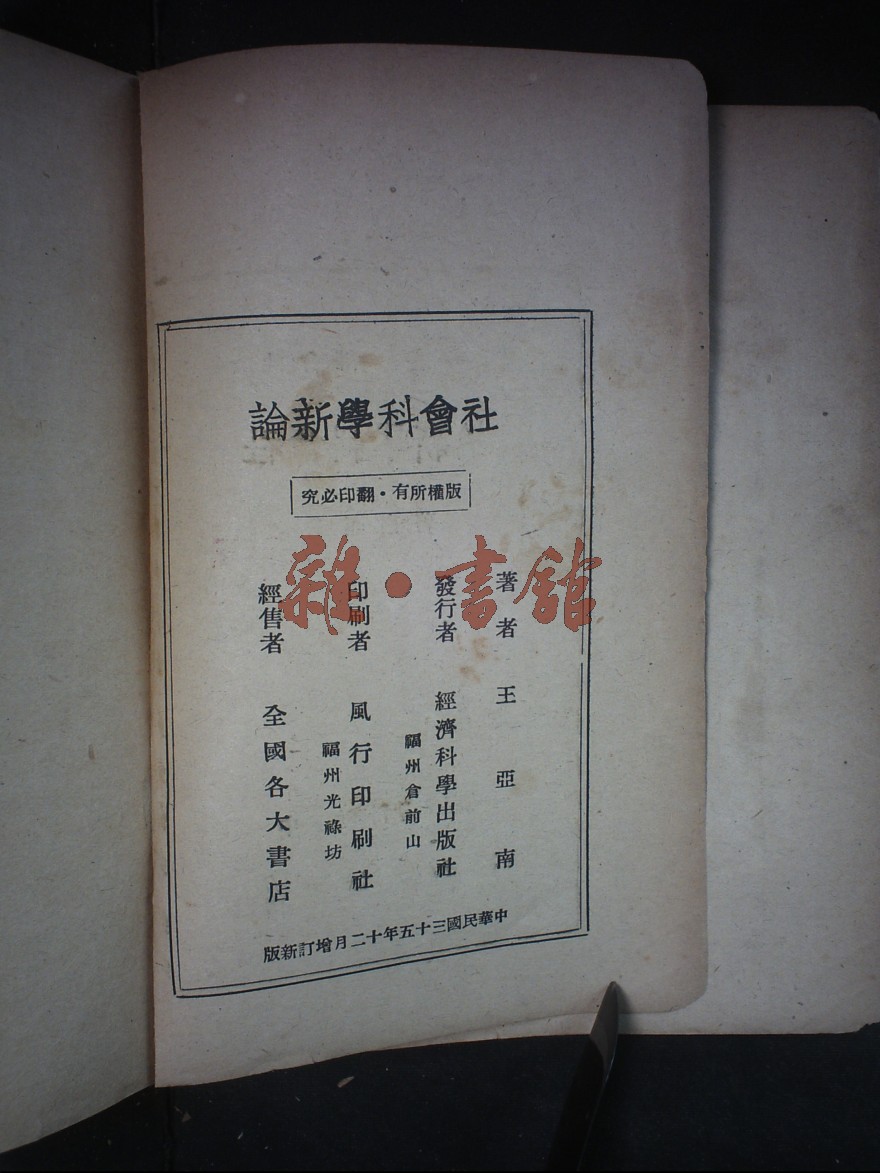 社會科學新論
版權所有・翻印必究
著者 王亞南
發行者 經濟科學出版社
福州倉前山
印刷者 風行印刷社
福州光祿坊
經售者 全國各大書店
中華民國三十五年十二月增訂新版
雜・書館